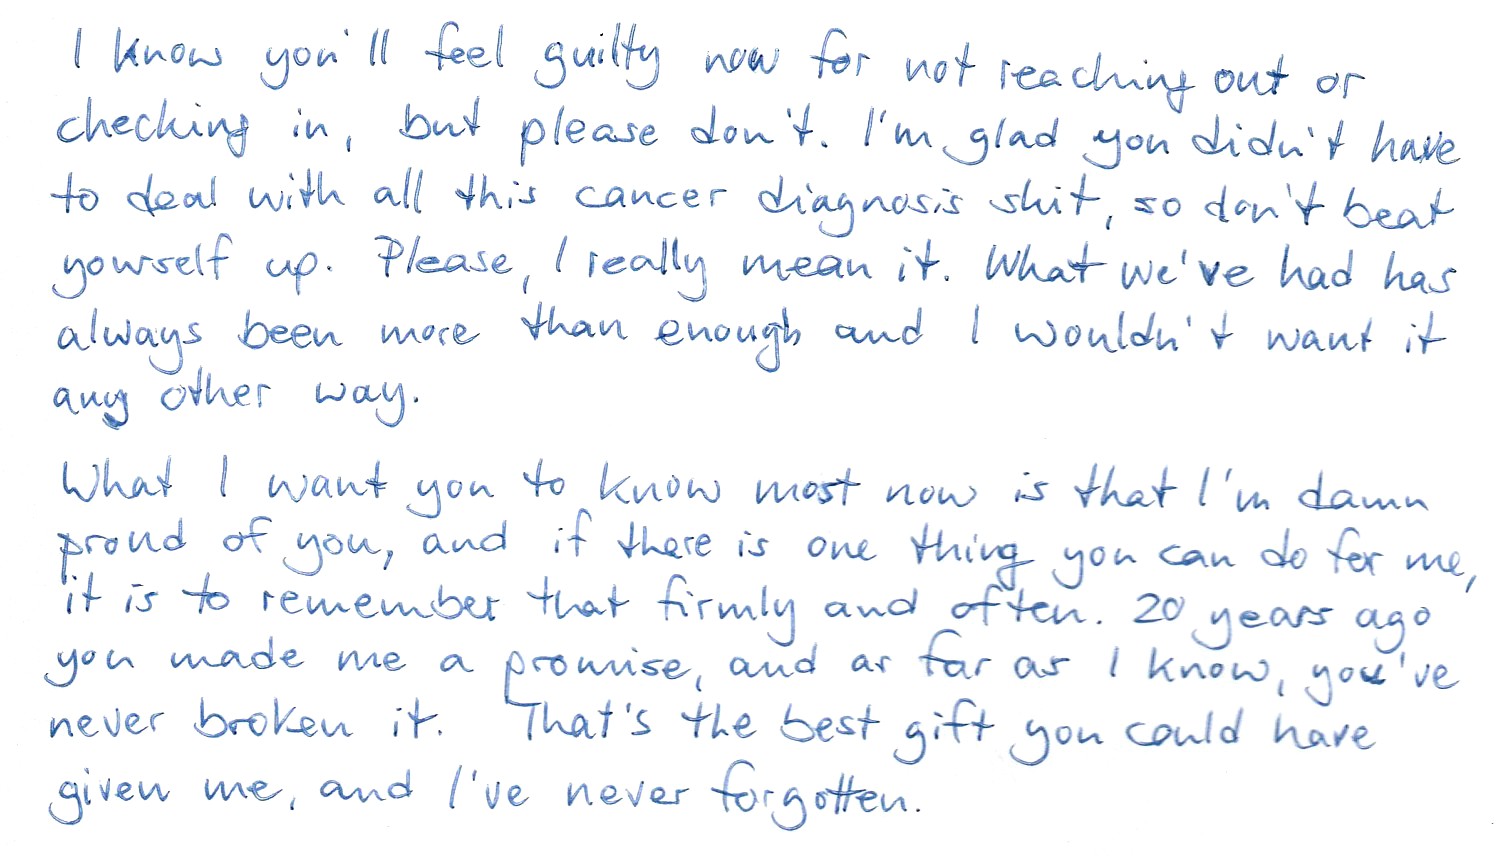 I know you'll feel guilty now for not reaching out or
checking in, but please don't. I'm glad you didn't have
to deal with all this cancer diagnosis shit, so don't beat
yourself up. Please, I really mean it. What we've had has
always been more than enough and I wouldn't want it
any other way.
What I want you to know most now is that I'm damn
proud of you, and if there is one thing you can do for me,
it is to remember that firmly and often. 20 years ago
you made me a promise, and as far as I know, you've
never broken it. That's the best gift you could have
given me, and I've never forgotten.